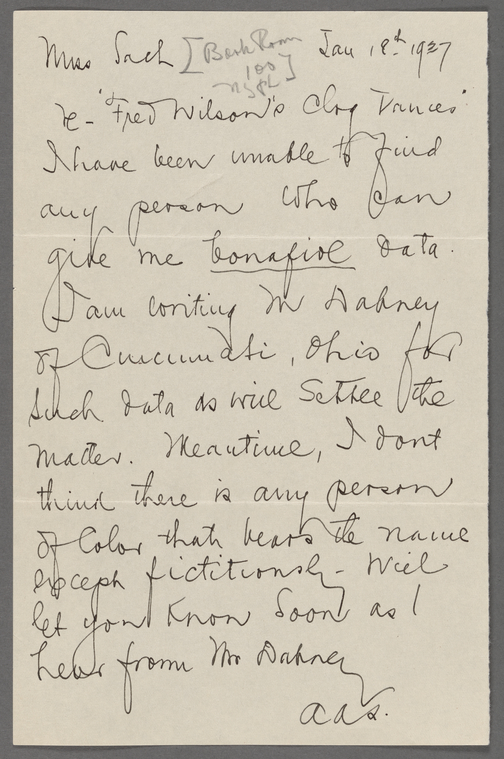 Miss Sach [Book Room Jan 18th 1937
100
NYPL]
re - "Fred Wilson's Clog Dances"
I have been unable to find
any person who can
give me bonafide data.
I am writing Mr Dabney
of Cincinnati, Ohio for
such data as will settle the
matter. Meantime, I dont
think there is any person
of Color that bears the name
except fictitiously - Will
let you know soon as I
hear from Mr Dabney
AAS.